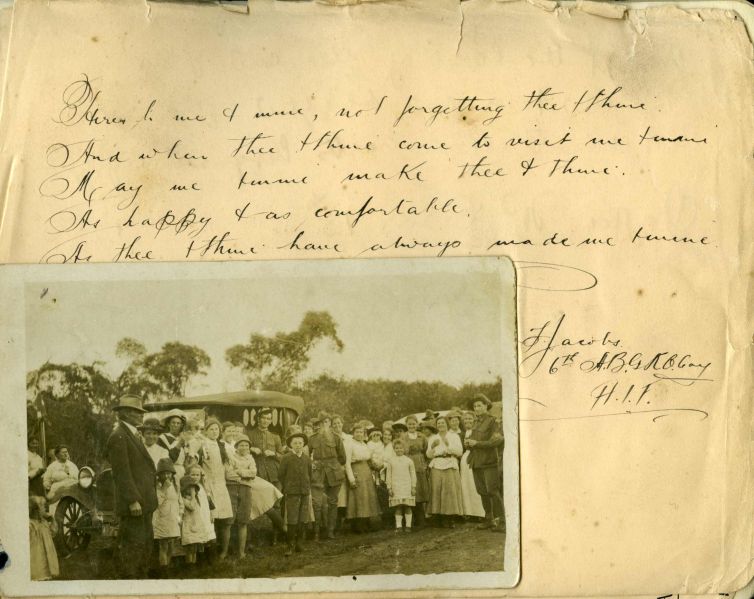 Heres to me & mine, not forgetting thee & thine.
And when thee & thine come to visit me & mine
May me & mine make thee & thine.
As happy & as comfortable.
As thee & thine have always made me & mine.
F. Jacobs.
6th A.B.G.R.O.Coy
A.I.F.